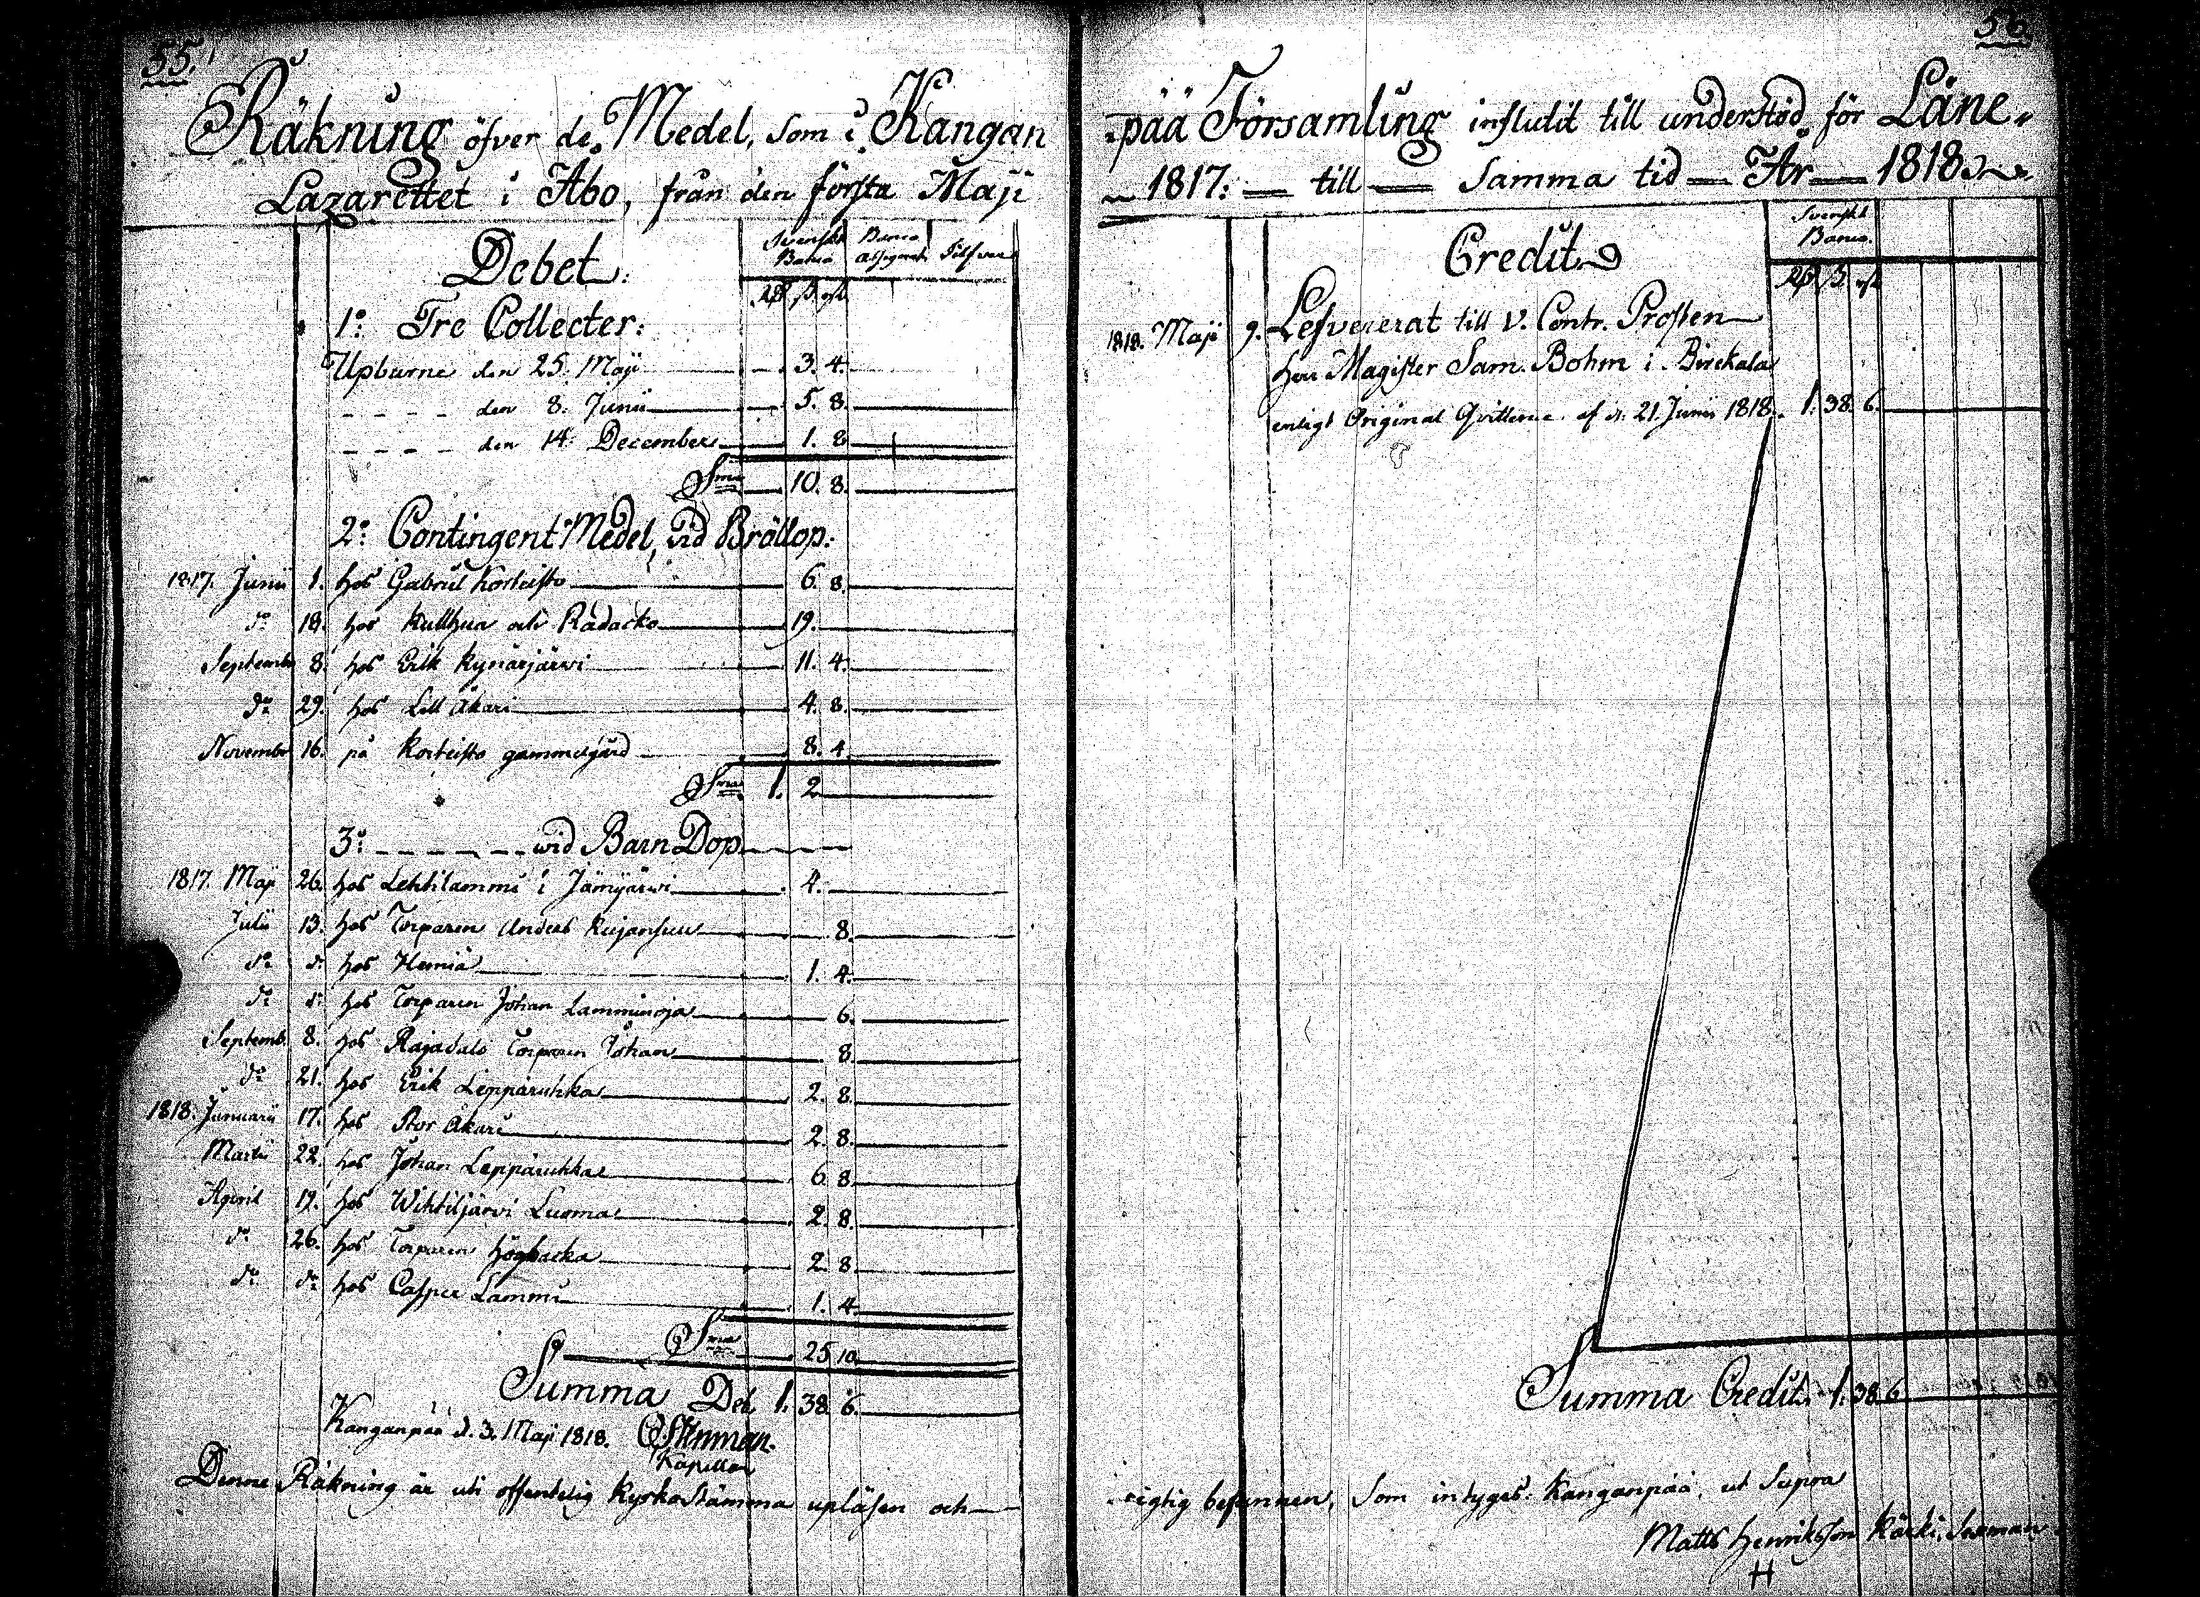 55.
Räkning öfver de Medel, som i Kangan
Lazarettet i Åbo, från den första Maji
Debet.
Svenskt Banco
Banco Assignat.
Silfver
Rd ß rst
1o: Tre Collecter:
Upburne den 25. Maji 3. 4.
- - - - den 8. Junii 5. 8.
- - - - den 14. December 1. 8
Sma 10. 8.
2o: Contingent Medel, vid Bröllop.
1817. Junii 1. hos Gabriel Korteisto 6. 8.
do 18. hos Kullhua och Rådacko 19.
Septembr 8. hos Erik Kynäsjärwi 11. 4.
do 29. hos Lill Äkäri 4. 8.
Novembr 16. på Korteisto gammelgård 8. 4.
Sma 1. 2
3o: - - - - - - wid Barn Dop
1817. Maji 26. hos Lehtilammi i Jämijärwi 4.
Julii 13. hos Torparen Anders Kujansuu 8.
do do hos Hemiä 1. 4.
do do hos Torparen Johan Lamminoja 6.
Septemb. 8. hos Rajasalo Torparen Johan 8.
do 21. hos Erik Leppäruhka 2. 8.
1818. Januarii 17. hos Stor Äkäri 2. 8.
Martii 22. hos Johan Leppäruhka 6 8.
April 19. hos Wihtiljärvi Luoma 2. 8.
do 26. hos Torparen Högbacka 2 8.
do do hos Casper Lammi 1. 4.
Sma 25 10
Summa Deb. 1. 38. 6.
Kanganpää d. 3. Maji 1818. Stenman.
Kapellan
Denne Räkning är uti offentelig Kyrkostämma upläsen och
56.
pää Församling influtit till understöd för Läne-
1817. till samma tid År 1818.
Credit
Svenskt Banco.
Rd ß rst
1818. Maji 9. Lefvererat till V. Contr. Prosten
Herr Magister Sam. Bohm i Birckala
enligt Original Qvittence af d. 21. Junii 1818. 1. 38. 6.
Summa Credit. 1. 38 6
rigtig befunnen, som intygas. Kanganpää, ut Supra
Matts Henriksson Kärki. Sexman
H